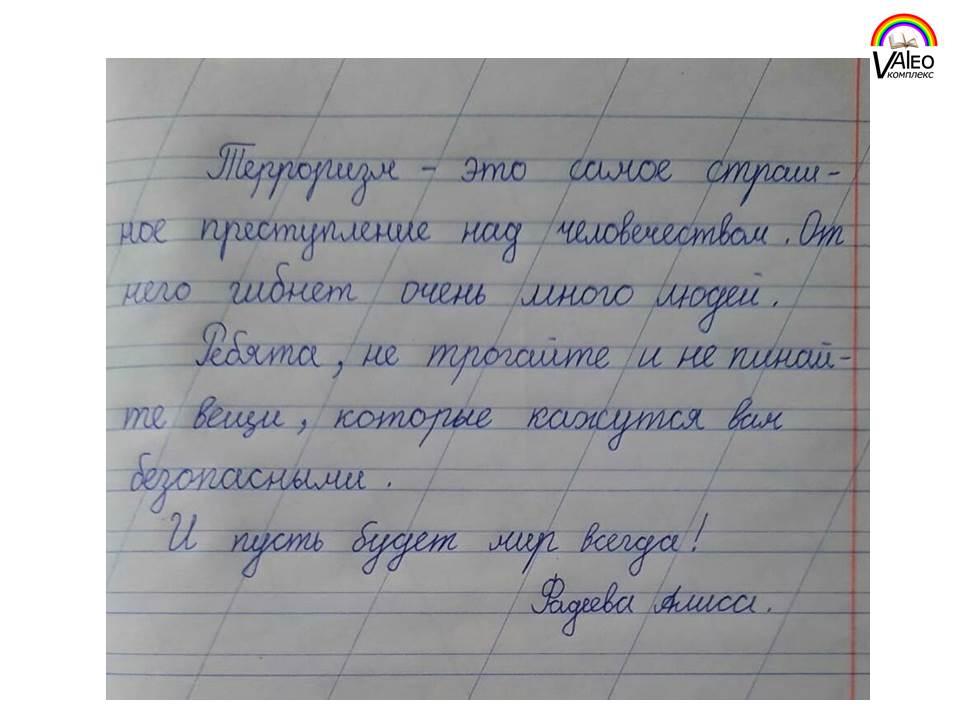 VAleO
комплекс
Терроризм – это самое страш-
ное преступление над человечеством. От
него гибнет очень много людей.
Ребята, не трогайте и не пинай-
те вещи, которые кажутся вам
безопасными.
И пусть будет мир всегда!
Фадеева Алиса.